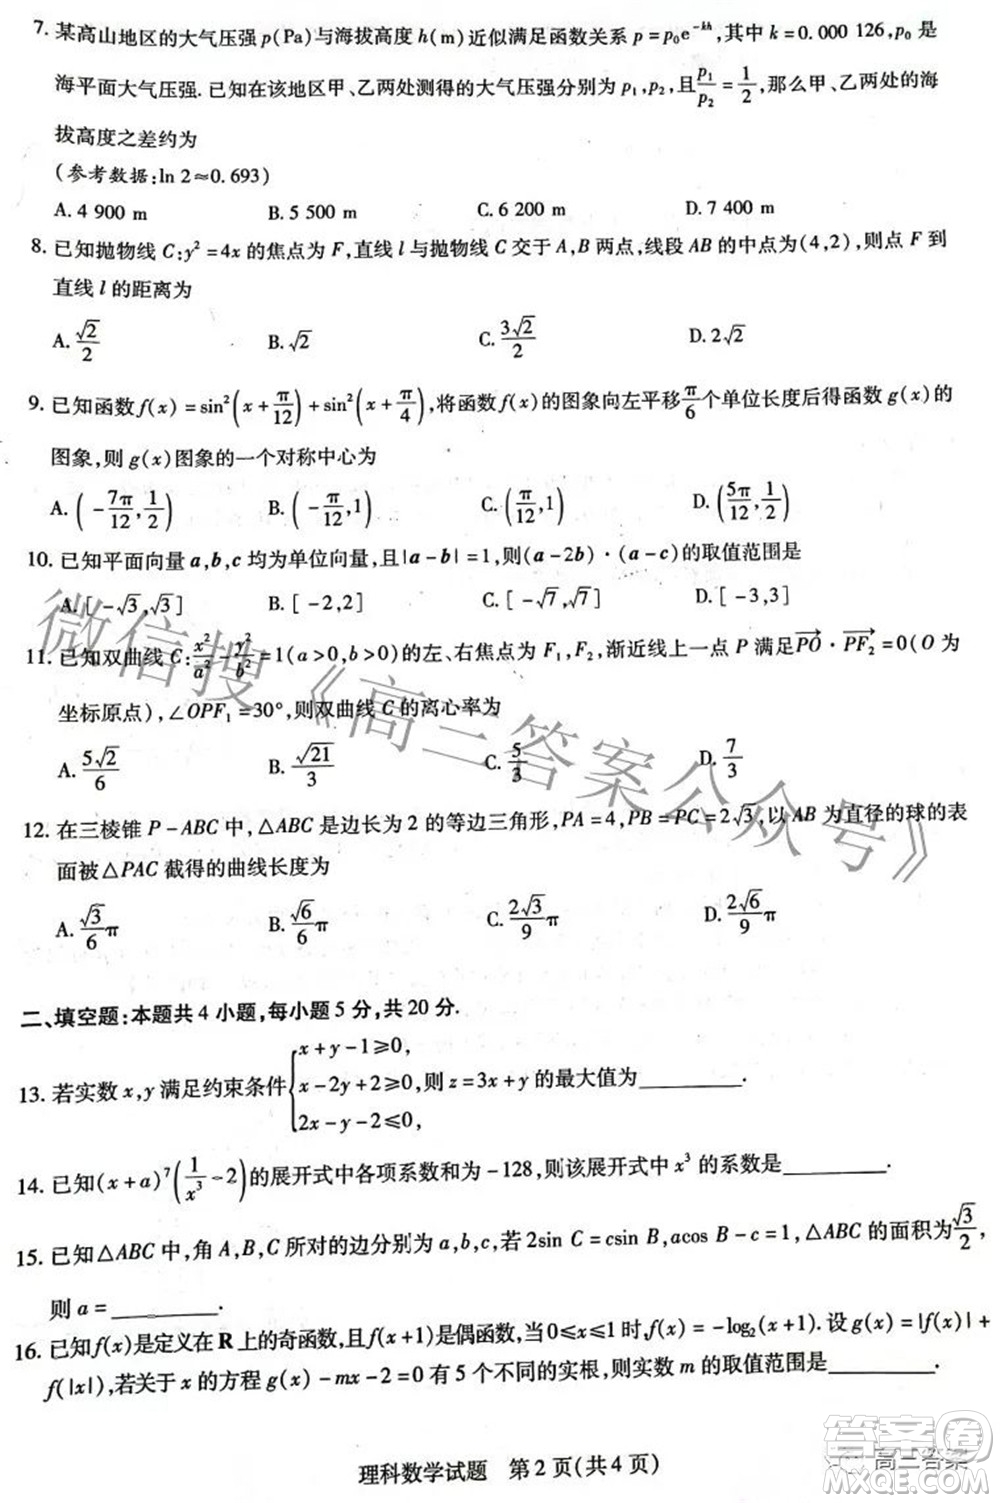 7. 某高山地区的大气压强 p(Pa)与海拔高度 h(m)近似满足函数关系 p=p₀e⁻ᵏʰ,其中 k=0.000 126,p₀ 是
海平面大气压强. 已知在该地区甲、乙两处测得的大气压强分别为 p₁,p₂,且p₁/p₂=1/2,那么甲、乙两处的海
拔高度之差约为
(参考数据:ln 2≈0.693)
A. 4 900 m B. 5 500 m C. 6 200 m D. 7 400 m
8. 已知抛物线 C:y²=4x 的焦点为 F,直线 l 与抛物线 C 交于 A,B 两点,线段 AB 的中点为(4,2),则点 F 到
直线 l 的距离为
A. √2/2 B. √2 C. 3√2/2 D. 2√2
9. 已知函数 f(x)=sin²(x+π/12)+sin²(x+π/4),将函数 f(x)的图象向左平移π/6个单位长度后得函数 g(x)的
图象,则 g(x)图象的一个对称中心为
A. (-7π/12,1/2) B. (-π/12,1) C. (π/12,1) D. (5π/12,1/2)
10. 已知平面向量 a,b,c 均为单位向量,且|a-b|=1,则(a-2b)·(a-c)的取值范围是
A. [-√3,√3] B. [-2,2] C. [-√7,√7] D. [-3,3]
11. 已知双曲线 C:x²/a²-y²/b²=1(a>0,b>0)的左、右焦点为 F₁,F₂,渐近线上一点 P 满足PO→·PF₂→=0(O 为
坐标原点),∠OPF₁=30°,则双曲线 C 的离心率为
A. 5√2/6 B. √21/3 C. 5/3 D. 7/3
12. 在三棱锥 P-ABC 中,△ABC 是边长为 2 的等边三角形,PA=4,PB=PC=2√3,以 AB 为直径的球的表
面被△PAC 截得的曲线长度为
A. √3/6π B. √6/6π C. 2√3/9π D. 2√6/9π
二、填空题:本题共 4 小题,每小题 5 分,共 20 分.
13. 若实数 x,y 满足约束条件{x+y-1⩾0, x-2y+2⩾0, 2x-y-2⩽0,则 z=3x+y 的最大值为________.
14. 已知(x+a)⁷(1/x³-2)的展开式中各项系数和为-128,则该展开式中 x³ 的系数是________.
15. 已知△ABC 中,角 A,B,C 所对的边分别为 a,b,c,若 2sin C=csin B,acos B-c=1,△ABC 的面积为√3/2,
则 a=________.
16. 已知 f(x)是定义在 R 上的奇函数,且 f(x+1)是偶函数,当 0⩽x⩽1 时,f(x)=-log₂(x+1). 设 g(x)=|f(x)|+
f(|x|),若关于 x 的方程 g(x)-mx-2=0 有 5 个不同的实根,则实数 m 的取值范围是________.
理科数学试题 第 2 页(共 4 页)
微信搜《高三答案公众号》
答案卷
高三答案
MXQE.COM